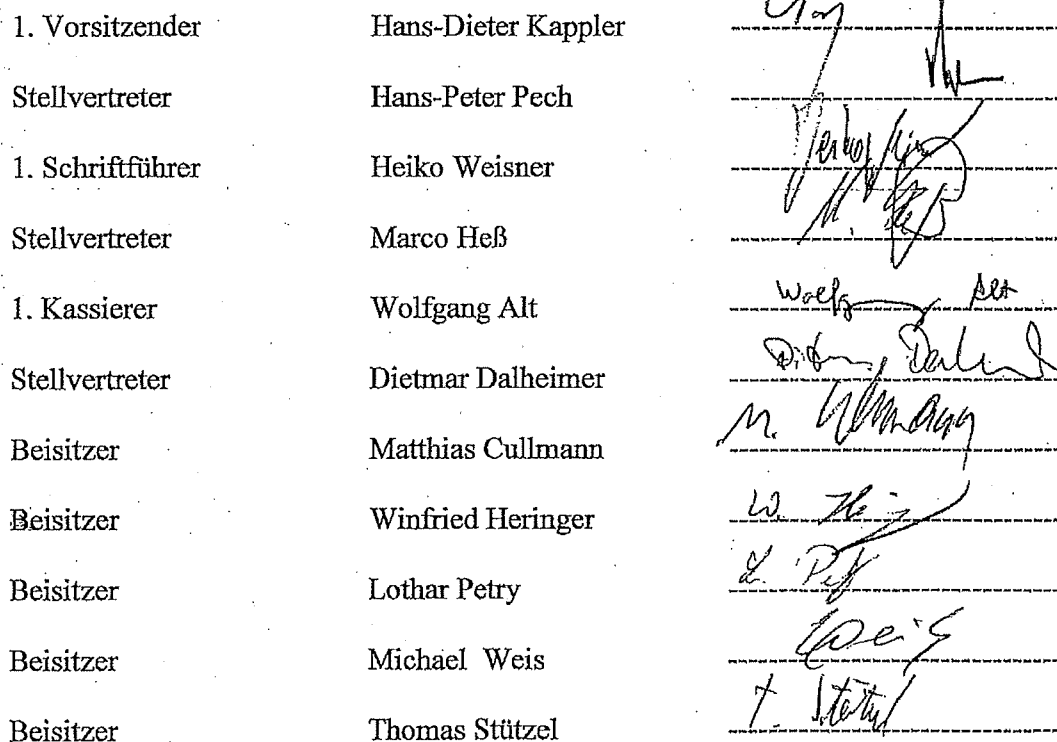 1. Vorsitzender Hans-Dieter Kappler
Stellvertreter Hans-Peter Pech
1. Schriftführer Heiko Weisner
Stellvertreter Marco Heß
1. Kassierer Wolfgang Alt Wolfg Alt
Stellvertreter Dietmar Dalheimer
Beisitzer Matthias Cullmann M. Cullmann
Beisitzer Winfried Heringer W.
Beisitzer Lothar Petry L.
Beisitzer Michael Weis Weis
Beisitzer Thomas Stützel T. Stützel